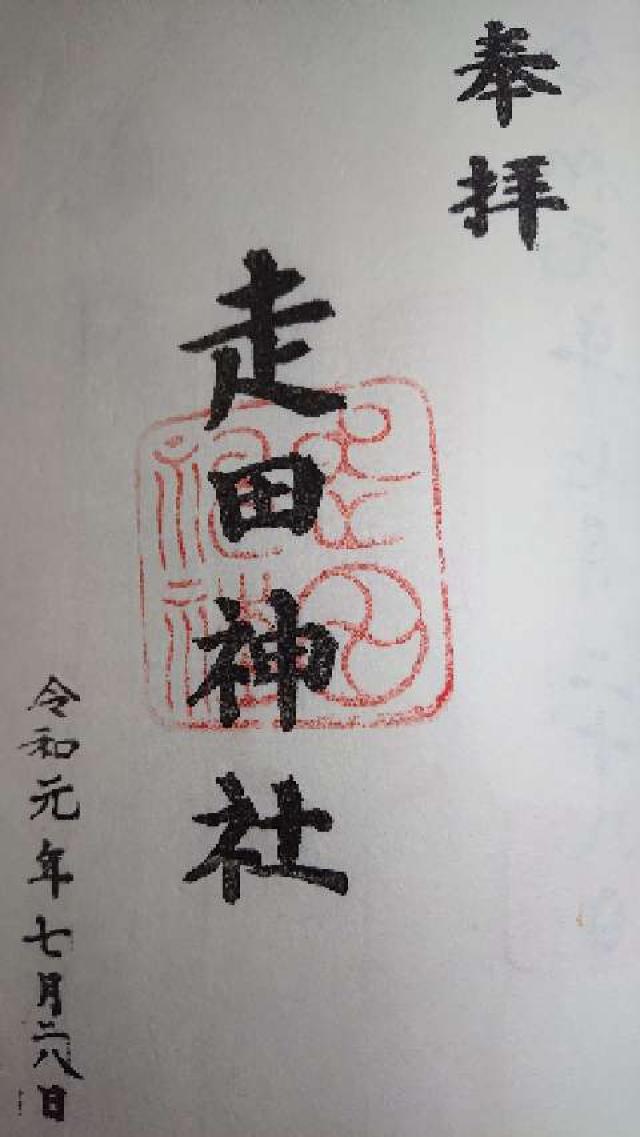 奉拝
走田神社
令和元年七月二八日